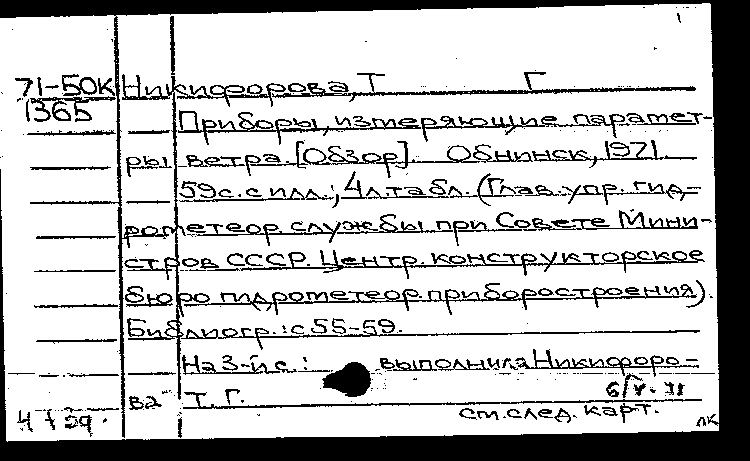 71-50К Никифорова, Т Г
1365
Приборы, измеряющие парамет-
ры ветра. [Обзор]. Обнинск, 1971.
59с. с илл.; 4л. табл. (Глав. упр. гид-
рометеор. службы при Совете Мини-
стров СССР. Центр. конструкторское
бюро гидрометеор. приборостроения).
Библиогр.: с 55-59.
На 3-й с.: выполнила Никифоро-
ва Т. Г.
см. след. карт.
лк